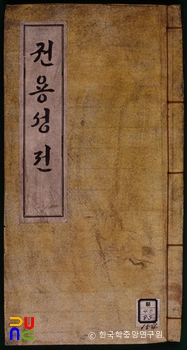 권용성젼
PUNS
ⓒ 한국학중앙연구원